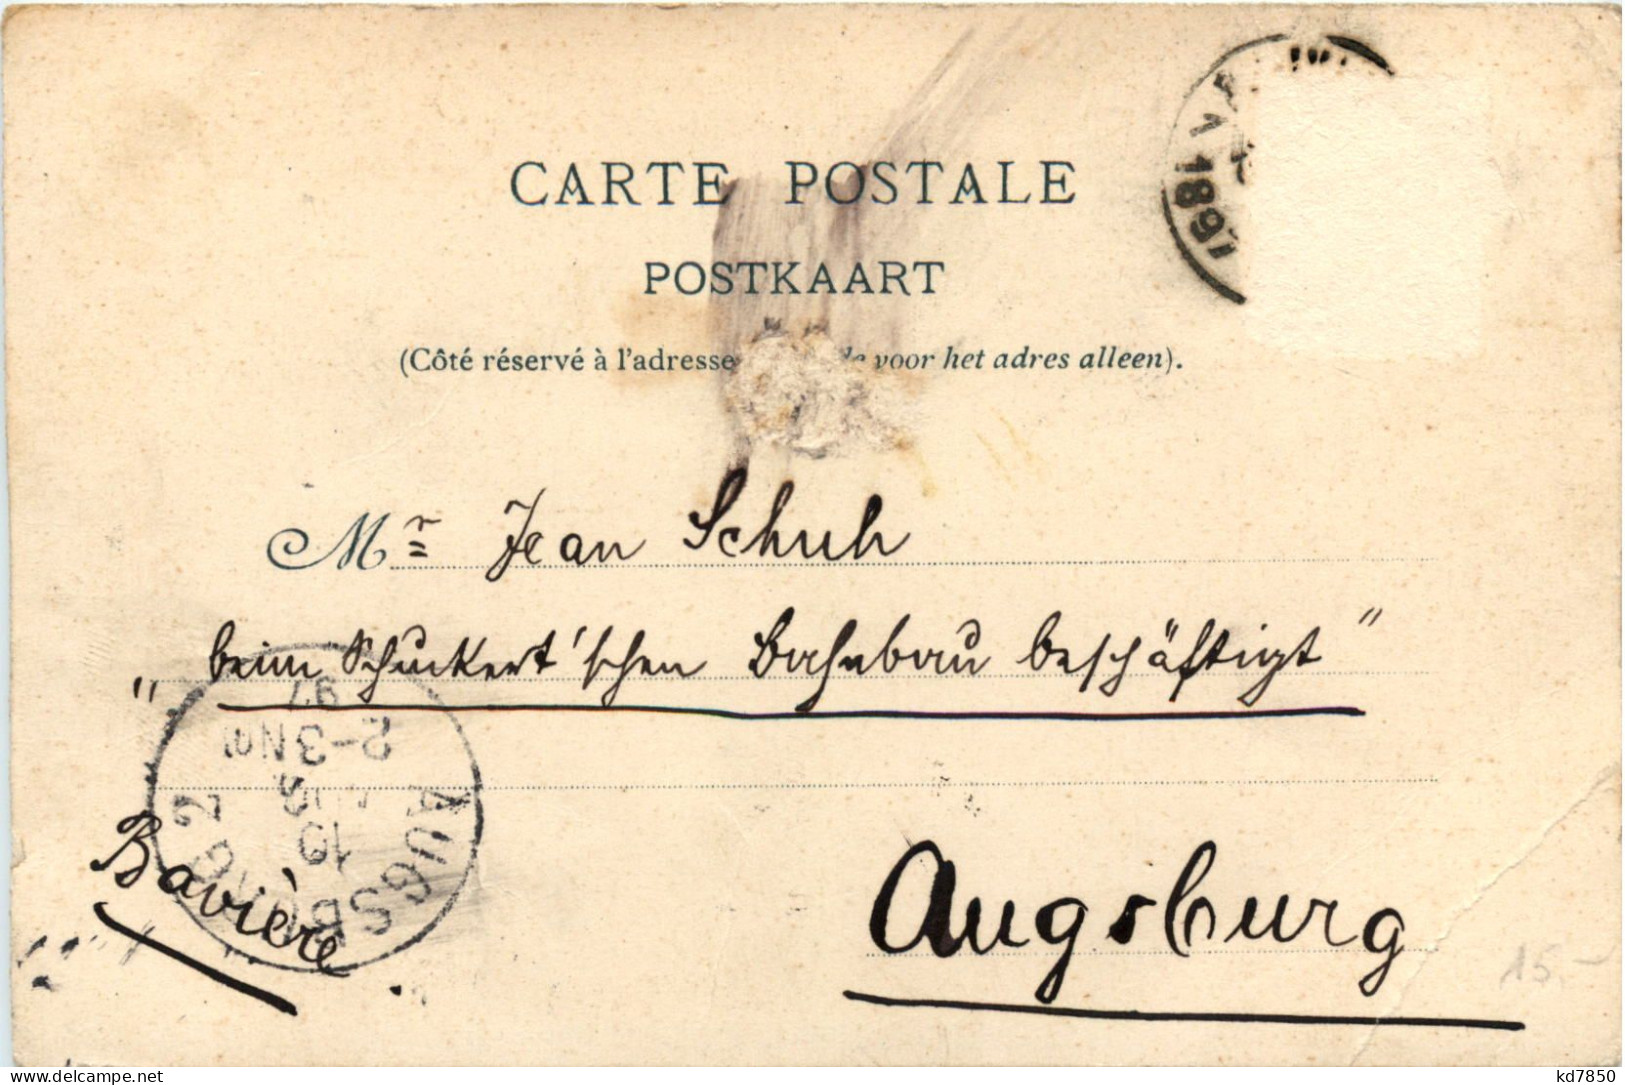 CARTE POSTALE
POSTKAART
(Côté réservé à l'adresse voor het adres alleen).
1897
Mr Jean Schuh
„beim Schuckert'schen Bahnbau beschäftigt"
AUGSBURG 2
2-3 Nm
97
Bavière
Augsburg
15.-
kd7850